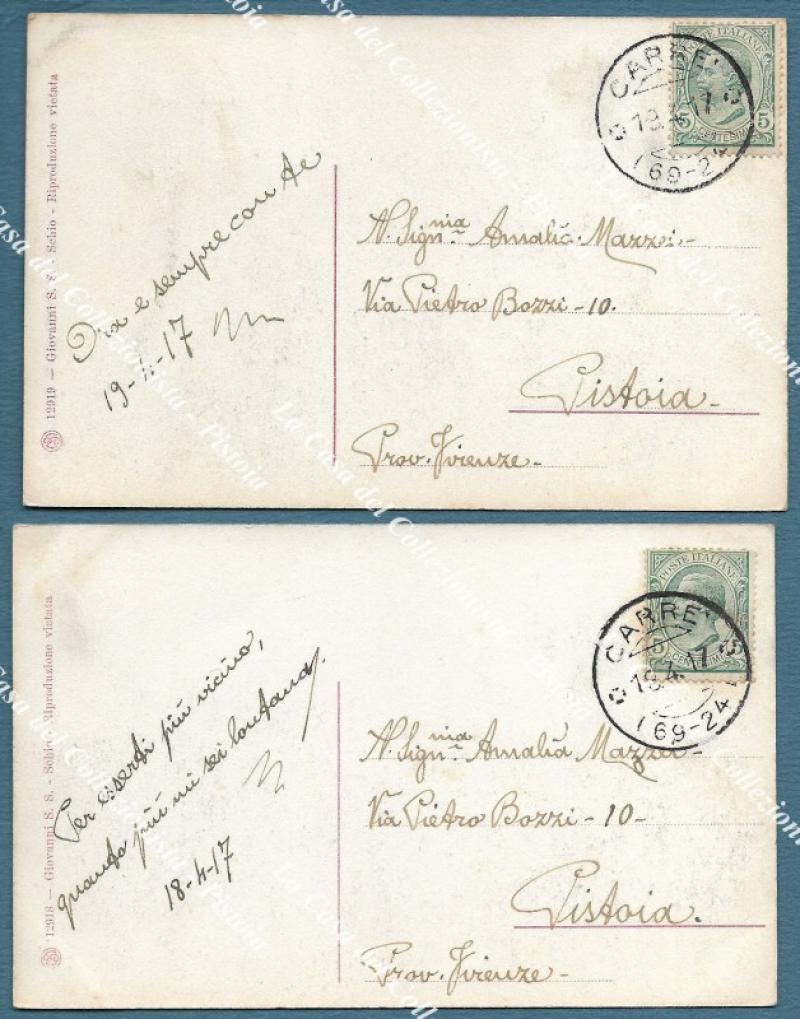 12919 — Giovanni S. S. - Schio - Riproduzione vietata
Ora e sempre con te
19-4-17
CARRE
19.4.17
(69-24
POSTE ITALIANE
5 5
CENTESIMI
N. Sign.nia Amalia Mazzei-
Via Pietro Bozzi-10.
Pistoia-
Prov. Firenze-
12918 — Giovanni S. S. - Schio - Riproduzione vietata
Per esserti più vicino,
quanto più mi sei lontana!
18-4-17
CARRE
18.4.17
(69-24
POSTE ITALIANE
5
CENTESIMI
N. Sign.nia Amalia Mazzei
Via Pietro Bozzi-10-
Pistoia.
Prov. Firenze-
La Casa del Collezionista - Pistoia